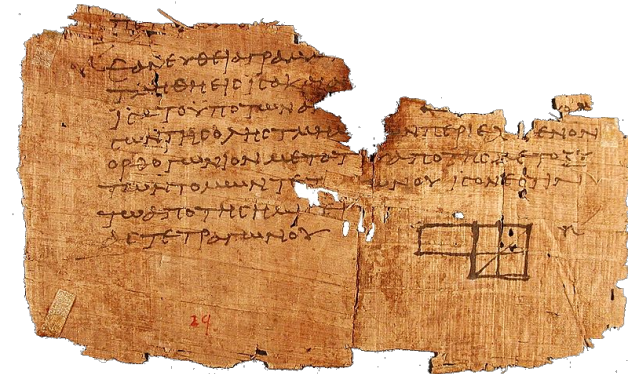 ΕΑΝ ΕΥΘΕΙΑ ΓΡΑΜ
ΤΜΗΘΗ ΕΙϹ ΙϹΑ ΚΑΙ Α
ΙϹΑ ΤΟ ΥΠΟ ΤΩΝ Α
ΤΩΝ ΤΗϹ ΟΛΗϹ ΤΜΗΜ ΩΝ ΠΕΡΙΕΧΟΜΕΝΟΝ
ΟΡΘΟΓΩΝΙΟΝ ΜΕΤΑ ΤΟΥ ΑΠΟ ΤΗϹ ΜΕΤΟΞΥ
ΤΩΝ ΤΟΜΩΝ ΤΕΤ ΩΝΟΥ ΙϹΟΝ ΕϹΤΙΝ
ΤΩ ΑΠΟ ΤΗϹ ΗΜΙϹ
ΑϹ ΤΕΤΡΑΓΩΝΟΥ
29